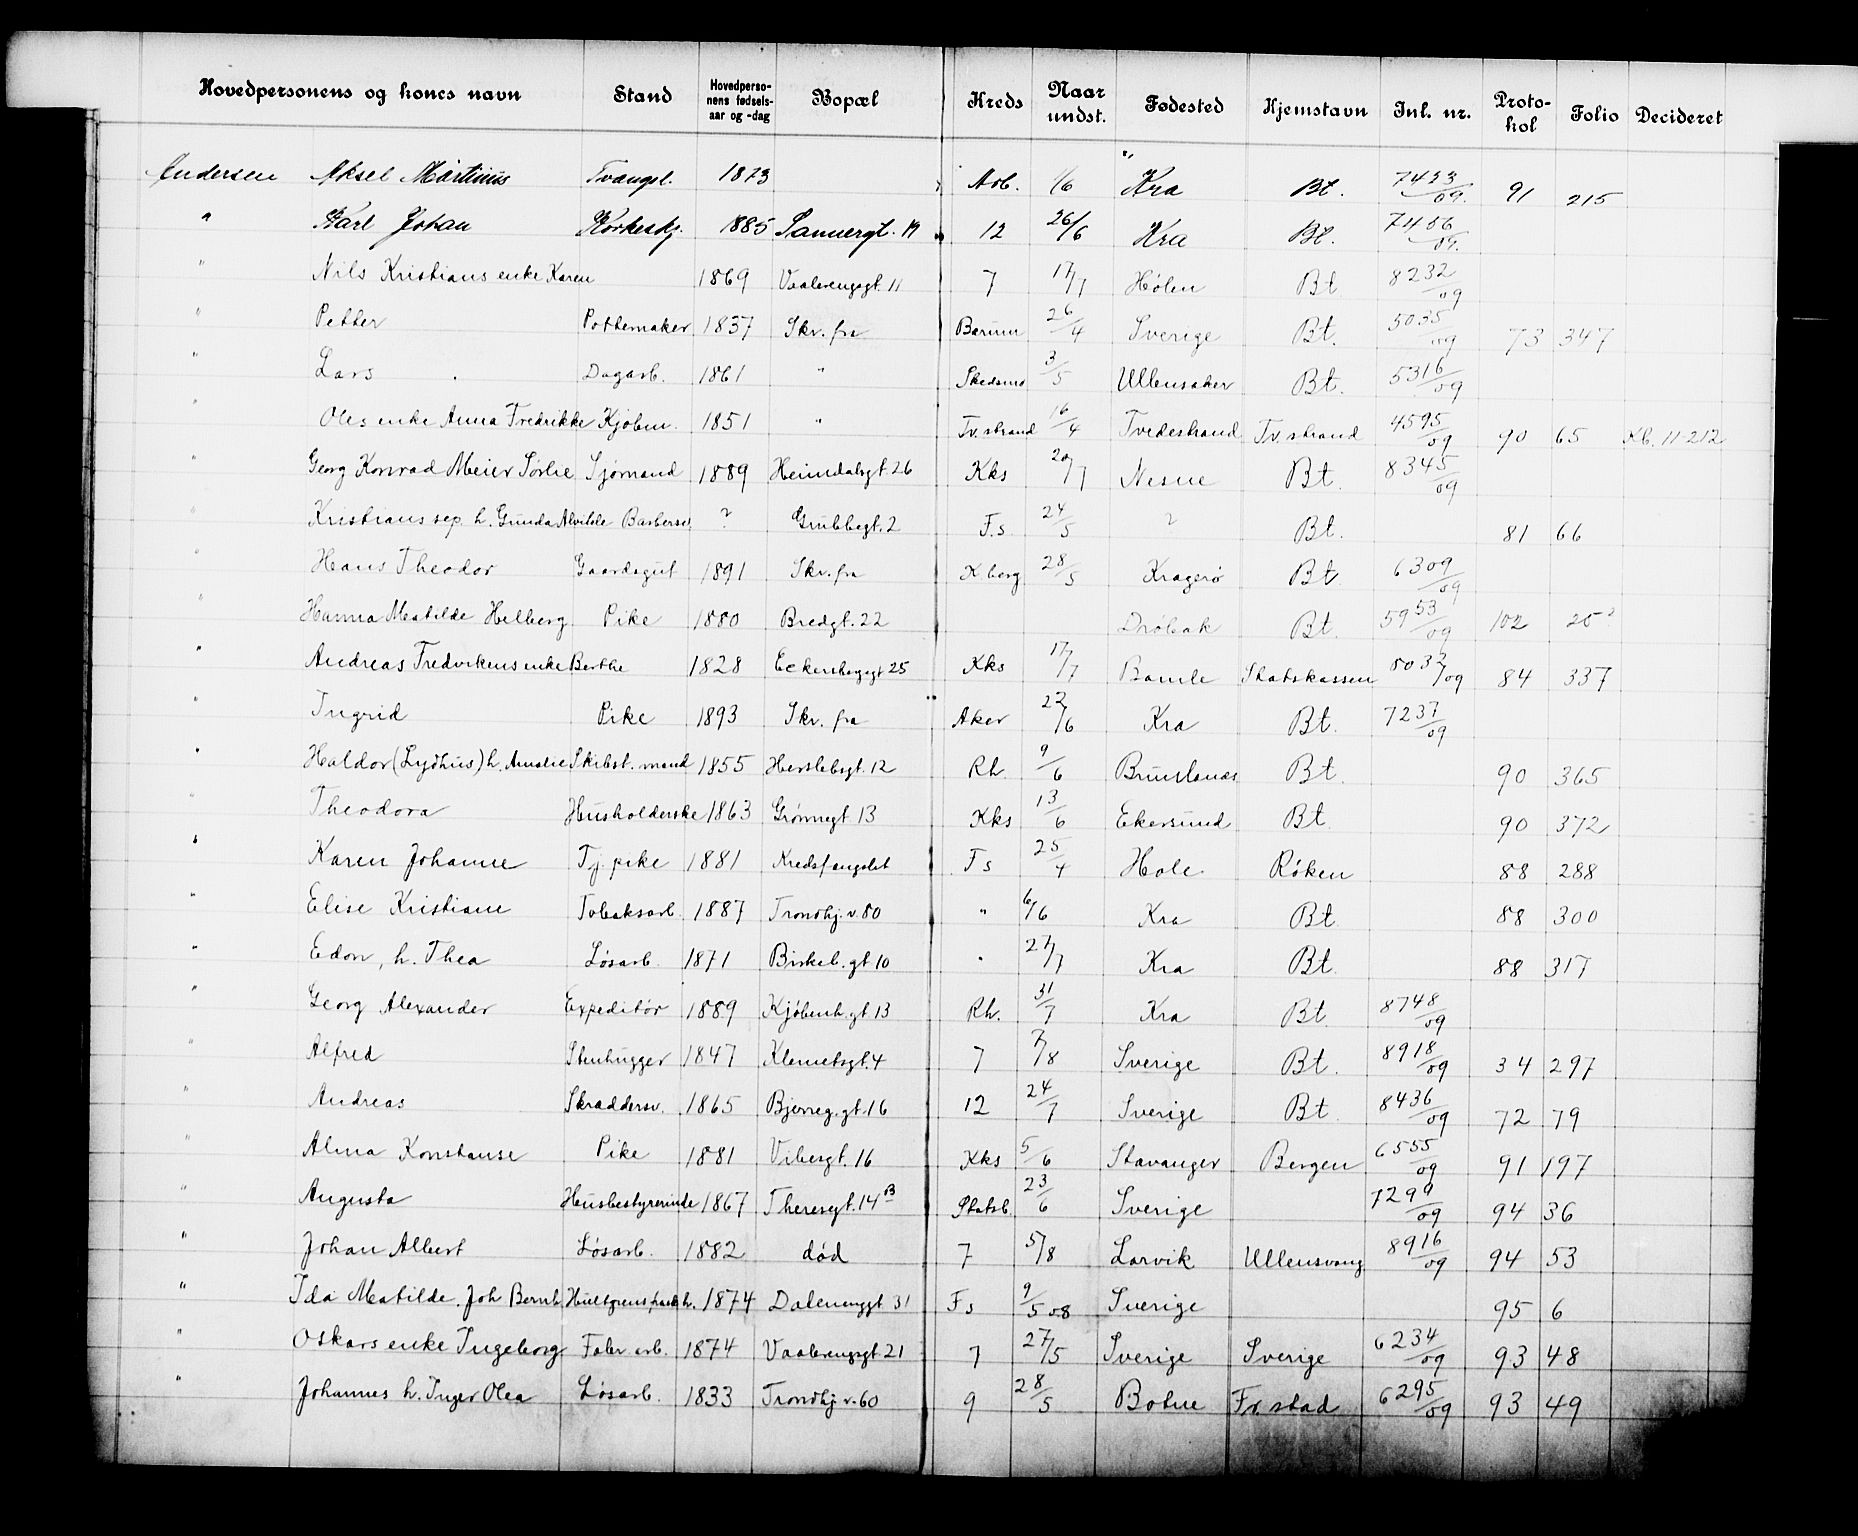 Hovedpersonens og kones navn | Stand | Hovedpersonens fødselsaar og -dag | Bopæl | Kreds | Naar undst. | Fødested | Hjemstavn | Inl. nr. | Protokol | Folio | Decideret
Andersen Aksel Martinius | Tvangsl. | 1873 | | Arb. | 1/6 | Kra | Bt. | 7433/09. | 91 | 215
" Karl Johan | Korkeskj. | 1885 | Sannergt. 19 | 12 | 26/6 | Kra | Bt. | 7456/09.
" Nils Kristians enke Karen | | 1869 | Vaalerengsgt. 11 | 7 | 17/7 | Hølen | Bt | 8232/09
" Petter | Pottemaker | 1837 | Skr. fra | Bærum | 26/4 | Sverige | Bt. | 5035/09 | 73 | 347
" Lars | Dagarb. | 1861 | " | Skedsmo | 3/5 | Ullensaker | Bt. | 5316/09
" Oles enke Anna Fredrikke | Kjøbm. | 1851 | " | Tv.strand | 16/4 | Tvedestrand | Tv.strand | 4595/09 | 90 | 65 | Kb. 11-212
" Georg Konrad Meier Sørlie | Sjømand | 1889 | Heimdalsgt. 26 | Kks | 20/7 | Nesne | Bt. | 8345/09
" Kristians sep. h. Gunda Alvilde | Barbersv. | ? | Grubbegt. 2 | F.s. | 24/5 | ? | Bt. | | 81 | 66
" Hans Theodor | Gaardsgut | 1891 | Skr. fra | K.borg | 28/5 | Kragerø | Bt | 6309/09
" Hanna Matilde Helberg | Pike | 1880 | Bredgt. 22 | | | Drøbak | Bt. | 5953/09 | 102 | 25²
" Andreas Fredriksens enke Berthe | | 1828 | Eckersbergsgt 25 | Kks | 17/7 | Bamle | Statskassen | 8032/09 | 84 | 337
" Ingrid | Pike | 1893 | Skr. fra | Aker | 22/6 | Kra | Bt. | 7237/09
" Haldor (Lydhus) h. Amalie | Skibst.mand | 1855 | Herslebsgt. 12 | Rh. | 9/6 | Brunlanes | Bt. | | 90 | 365
" Theodora | Husholderske | 1863 | Grønnegt 13 | Kks | 13/6 | Ekersund | Bt. | | 90 | 372
" Karen Johanne | Tj. pike | 1881 | Kredsfængslet | Fs | 25/4 | Hole | Røken | | 88 | 288
" Elise Kristiane | Tobaksarb. | 1887 | Trondhj. v. 80 | " | 6/6 | Kra | Bt | | 88 | 300
" Edon, h. Thea | Løsarb. | 1871 | Birkeb. gt 10 | " | 27/7 | Kra | Bt. | | 88 | 317
" Georg Alexander | Expeditør | 1889 | Kjøbenh. gt. 13 | Rh. | 31/7 | Kra | Bt | 8748/09
" Alfred | Stenhugger | 1847 | Klemetsgt. 4 | 7 | 7/8 | Sverige | Bt. | 8918/09 | 34 | 297
" Andreas | Skraddersv. | 1865 | Bjerreg. gt. 16 | 12 | 24/7 | Sverige | Bt. | 8436/09 | 72 | 79
" Alma Konstanse | Pike | 1881 | Vibesgt. 16 | Kks | 5/6 | Stavanger | Bergen | 6555/09 | 91 | 197
" Augusta | Husbestyrerinde | 1867 | Theresgt. 14 B | Statsb. | 23/6 | Sverige | | 7299/09 | 94 | 36
" Johan Albert | Løsarb. | 1882 | død | 7 | 5/8 | Larvik | Ullensvang | 8916/09 | 94 | 53
" Ida Matilde. Joh Bernh. | h. | 1874 | Dalenenggt 31 | Fs | 9/5 08 | Sverige | | | 95 | 6
" Oskars enke Ingeborg | Fabr arb. | 1874 | Vaalerengsgt 21 | 7 | 27/5 | Sverige | Sverige | 6234/09 | 93 | 48
" Johannes h. Inger Olea | Løsarb. | 1833 | Trondhj. v. 60 | 9 | 28/5 | Botne | Fr.stad | 6295/09 | 93 | 49